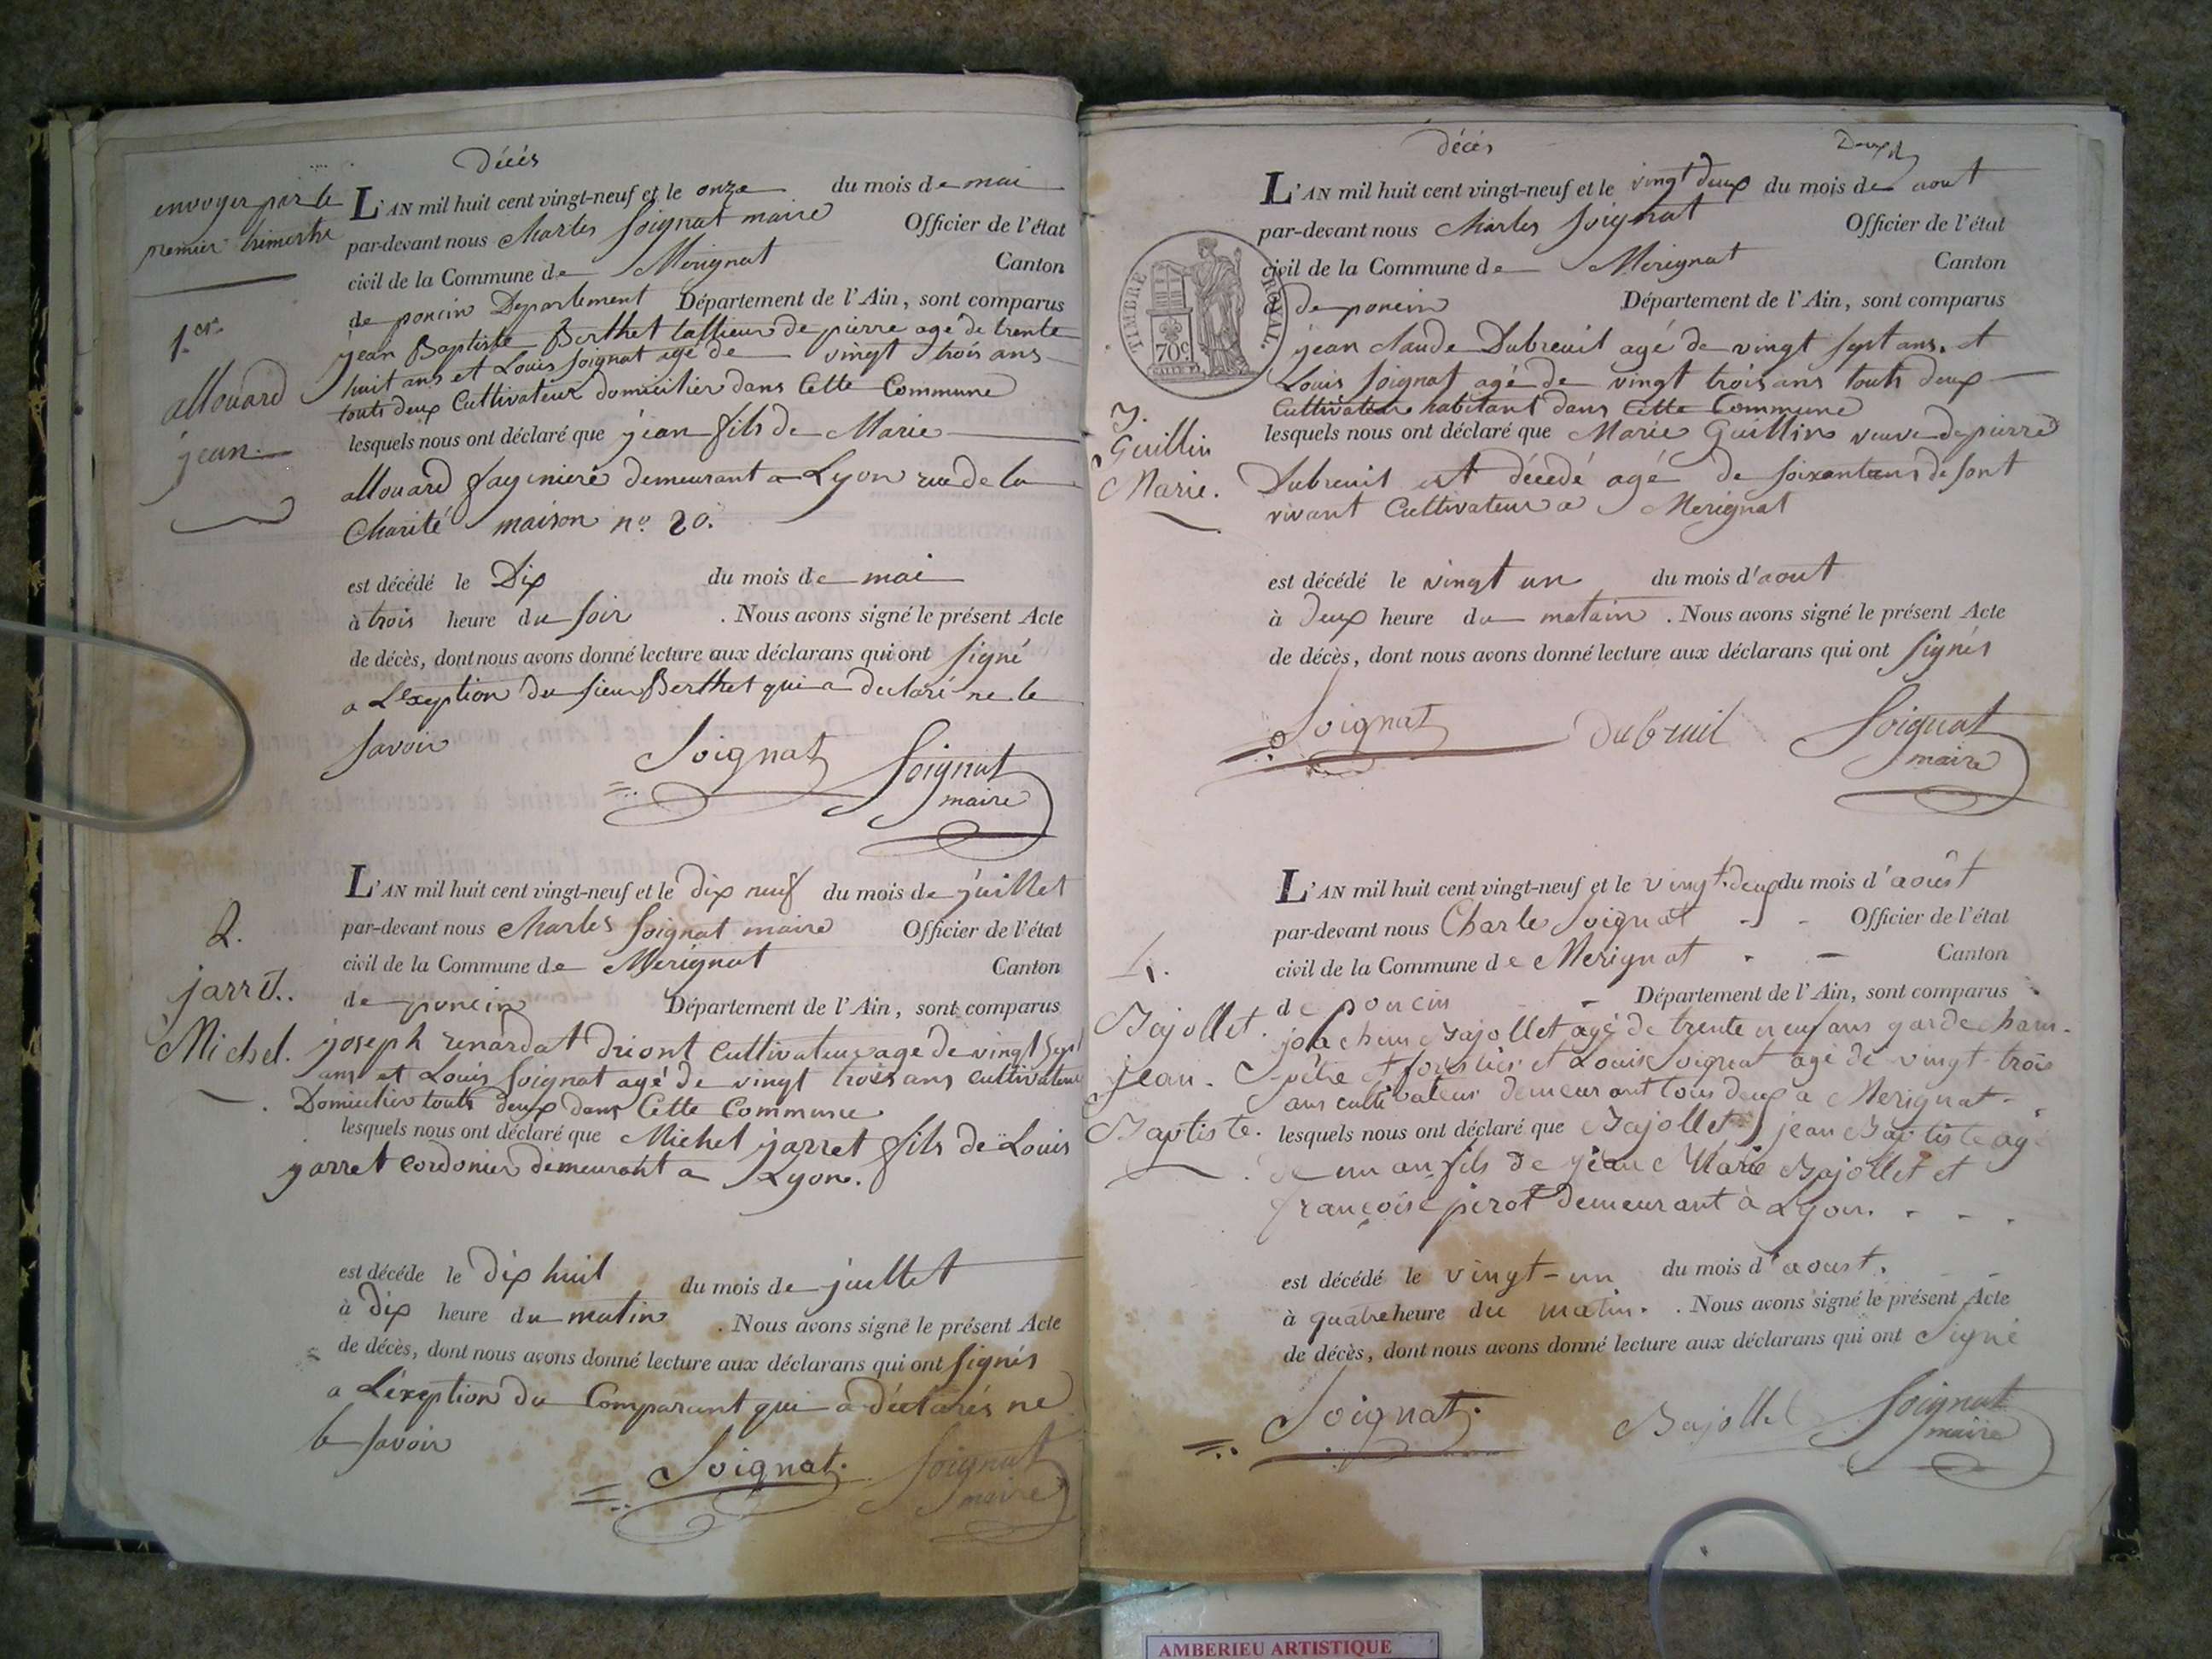 Décès
envoyer par le
premier trimestre
1er.
allouard
jean
L'AN mil huit cent vingt-neuf et le onze du mois de mai
par-devant nous Charles Soignat maire Officier de l'état
civil de la Commune de Merignat Canton
de poncin Departement Département de l'Ain, sont comparus
jean Baptiste Berthet tallieur de pierre agé de trente
huit ans et Louis Soignat agé de vingt trois ans
touts deux Cultivateur domicilier dans Cette Commune
lesquels nous ont déclaré que jean fils de Marie
allouard demeurant a Lyon rue de la
Charité maison n° 20.
est décédé le Dix du mois de mai
à trois heure du soir . Nous avons signé le présent Acte
de décès, dont nous avons donné lecture aux déclarans qui ont signé
a L'exeption du sieur Berthet qui a declaré ne le
savoir
Soignat Soignat
maire
2.
jarret.
Michel.
L'AN mil huit cent vingt-neuf et le dix neuf du mois de juillet
par-devant nous Charles Soignat maire Officier de l'état
civil de la Commune de Merignat Canton
de poncin Département de l'Ain, sont comparus
joseph renardat Cultivateur age de vingt sept
ans et Louis Soignat agé de vingt trois ans cultivateur
Domicilier touts deux dans Cette Commune
lesquels nous ont déclaré que Michel jarret fils de Louis
jarret cordonier demeurant a Lyon.
est décédé le dix huit du mois de juillet
à Dix heure du matin . Nous avons signé le présent Acte
de décès, dont nous avons donné lecture aux déclarans qui ont signés
a L'exeption du Comparant qui a déclarés ne
le savoir
Soignat. Soignat
maire
décès
Deux
TIMBRE ROYAL.
70c.
3.
Guillin
Marie.
L'AN mil huit cent vingt-neuf et le vingt deux du mois de aout
par-devant nous Charles Soignat Officier de l'état
civil de la Commune de Merignat Canton
de poncin Département de l'Ain, sont comparus
jean claude Dubreuil agé de vingt sept ans. et
Louis Soignat agé de vingt trois ans touts deux
Cultivateur habitant dans Cette Commune
lesquels nous ont déclaré que Marie Guillin veuve de pierre
Dubreuil est décedé agé de soixante ans de sont
vivant Cultivateur a Merignat
est décédé le vingt un du mois d'aout
à Deux heure du matain . Nous avons signé le présent Acte
de décès, dont nous avons donné lecture aux déclarans qui ont signés
Soignat dubreuil Soignat
maire
4.
Bajollet.
jean.
Baptiste.
L'AN mil huit cent vingt-neuf et le vingt-deux du mois d'août
par-devant nous Charle Soignat Officier de l'état
civil de la Commune de Merignat Canton
de poncin Département de l'Ain, sont comparus
joachim Bajollet agé de trente neuf ans garde cham-
pêtre et forestier et Louis Soignat agé de vingt-trois
ans cultivateur demeurant tous deux a Merignat
lesquels nous ont déclaré que Bajollet jean Baptiste agé
de un an fils de jean Marie Bajollet et
françoise perot demeurant à Lyon.
est décédé le vingt-un du mois d'aoust.
à quatre heure du matin. . Nous avons signé le présent Acte
de décès, dont nous avons donné lecture aux déclarans qui ont signé
Soignat. Bajollet Soignat
maire
AMBERIEU ARTISTIQUE